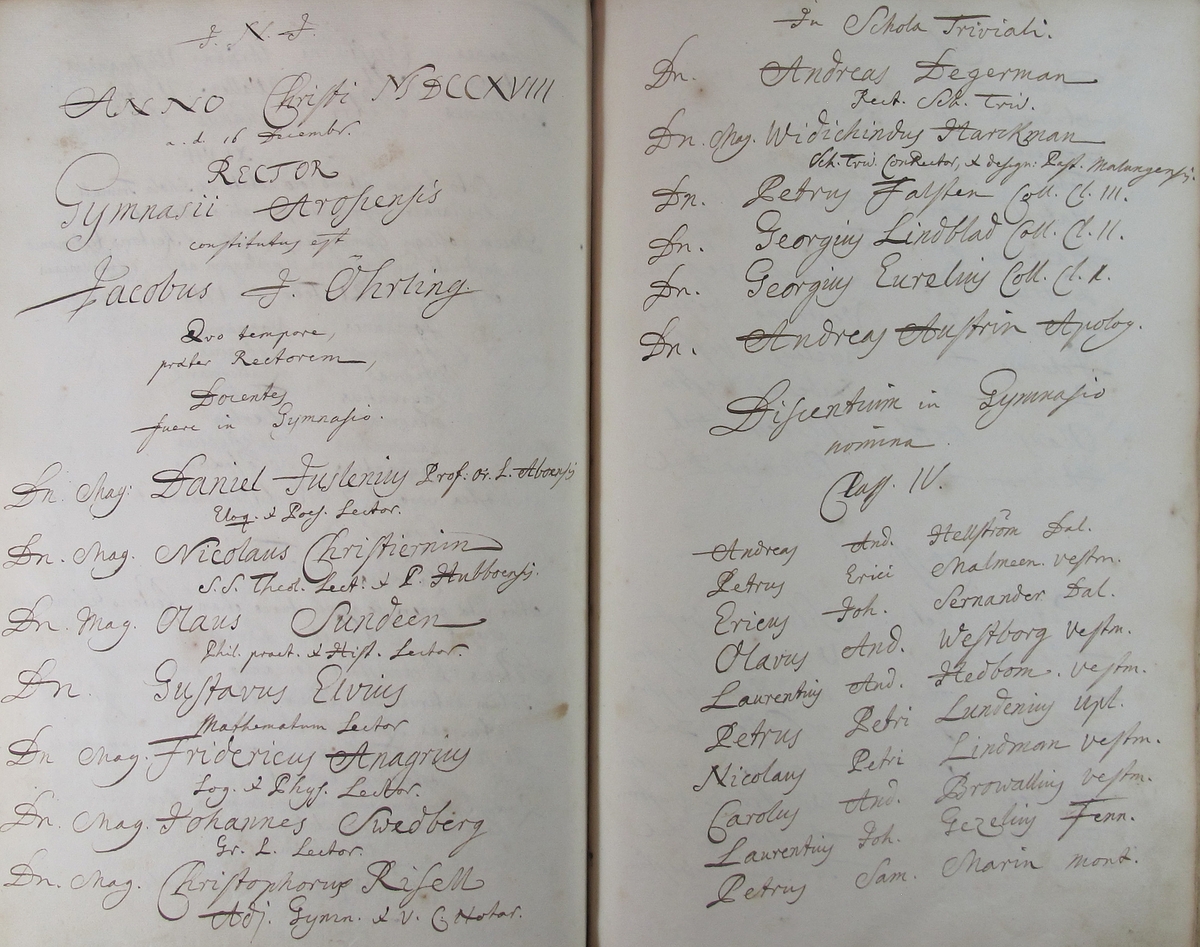 J. N. J.
ANNO Christi MDCCXVIII
a. d. 16 Decembr.
RECTOR
Gymnasii Arosiensis
constitutus est
Jacobus J. Öhrling.
Qvo tempore,
præter Rectorem,
Docentes
fuere in Gymnasio.
Dn. Mag: Daniel Juslenius Prof: Or. L. Aboensis
Eloq. & Poës. Lector.
Dn. Mag. Nicolaus Christiernin
S.S. Theol. Lect: & P. Hubboensis.
Dn. Mag. Olaus Sundeen
Phil. pract. & Hist. Lector.
Dn. Gustavus Elvius
Mathematum Lector
Dn Mag. Fridericus Anagrius
Log. & Phys. Lector.
Dn. Mag. Johannes Swedberg
Gr. L. Lector.
Dn. Mag. Christophorus Risell
Adj. Gymn. & V. C. Notar.
In Schola Triviali.
Dn. Andreas Degerman
Rect. Sch. Triv.
Dn. Mag. Widichindus Harckman
Sch. Triv. ConRector, & design: Past. Malungensis.
Dn. Petrus Falsten Coll. Cl. III.
Dn. Georgius Lindblad Coll. Cl. II.
Dn. Georgius Eurelius Coll. Cl. I.
Dn. Andreas Austrin Apolog.
Discentium in Gymnasio
nomina.
Class. IV.
Andreas And. Hellström Dal.
Petrus Erici Malmeen. vestm.
Ericus Joh. Sernander Dal.
Olavus And. Westborg vestm.
Laurentius And. Hedbom. vestm.
Petrus Petri Lundenius upl.
Nicolaus Petri Lindman vestm.
Carolus And. Browallius vestm.
Laurentius Joh. Gezelius Fenn.
Petrus Sam. Marin mont.